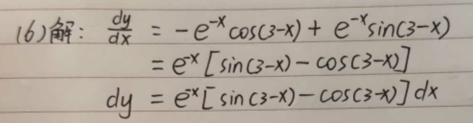 (6)解: dy/dx = -e^{-x}cos(3-x) + e^{-x}sin(3-x)
= e^{-x}[sin(3-x) - cos(3-x)]
dy = e^{-x}[sin(3-x) - cos(3-x)]dx